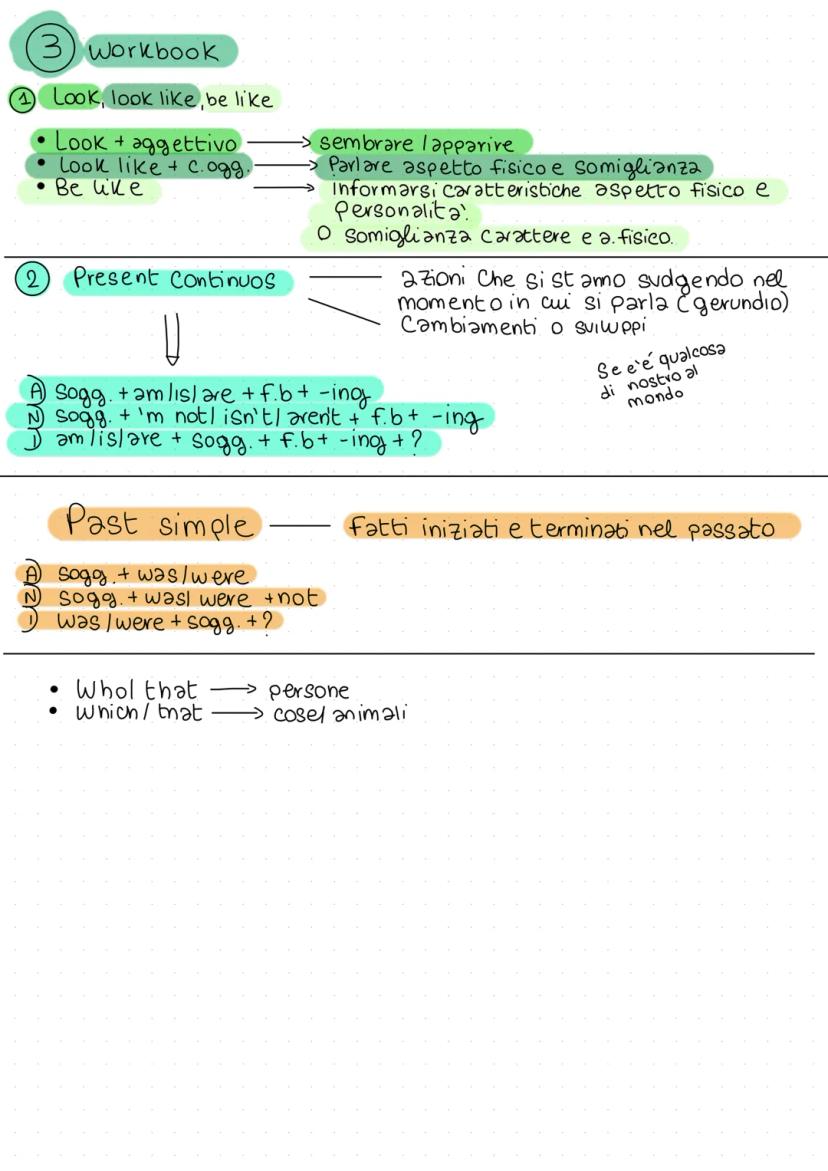 3 workbook
1 Look, look like, be like
• Look + aggettivo → sembrare / apparire
• Look like + c.ogg. → Parlare aspetto fisico e somiglianza
• Be like → Informarsi caratteristiche aspetto fisico e
personalità.
O somiglianza carattere e a.fisico.
2 Present continuos — azioni che si stamo svolgendo nel
momento in cui si parla (gerundio)
Cambiamenti o sviluppi
Se c'è qualcosa
di nostro al
mondo
A) sogg. + am/is/are + f.b + -ing
N) sogg. + 'm not/ isn't/ aren't + f.b + -ing
I) am/is/are + sogg. + f.b + -ing + ?
Past simple — fatti iniziati e terminati nel passato
A) sogg. + was/were
N) sogg. + was/ were + not
I) was/were + sogg. + ?
• Who/ that → persone
• which/ that → cose/ animali